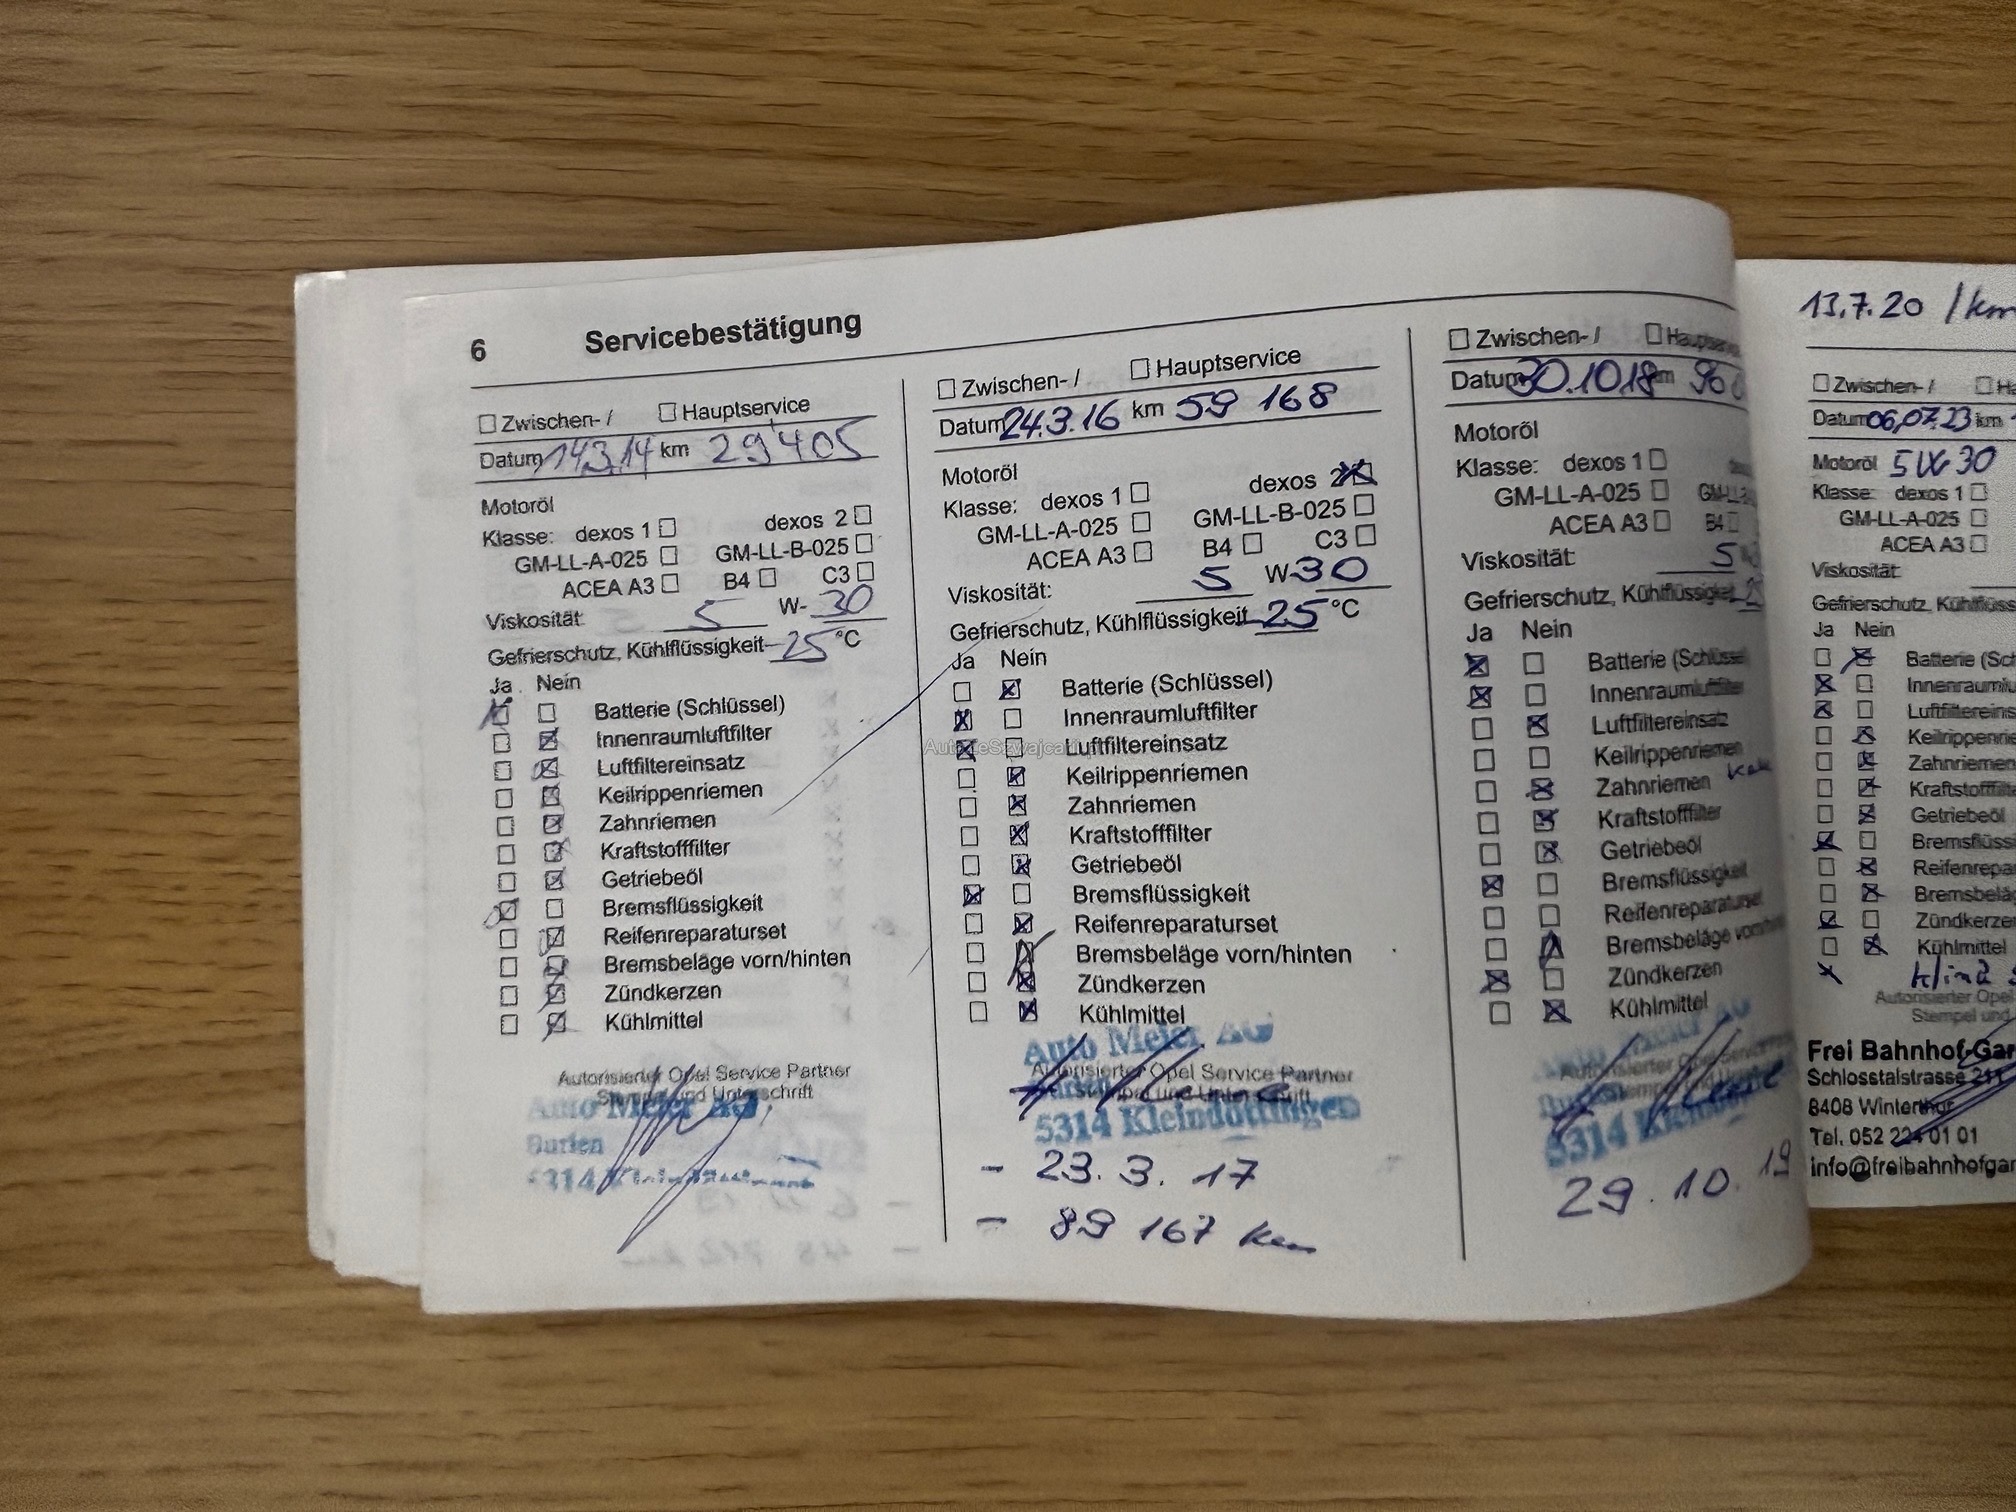 6 Servicebestätigung
☐ Zwischen- / ☐ Hauptservice
Datum 14.3.14 km 29'405
Motoröl
Klasse: dexos 1 ☐ dexos 2 ☐
GM-LL-A-025 ☐ GM-LL-B-025 ☐
ACEA A3 ☐ B4 ☐ C3 ☐
Viskosität: 5 W- 30
Gefrierschutz, Kühlflüssigkeit -25 °C
Ja Nein
☒ ☐ Batterie (Schlüssel)
☐ ☒ Innenraumluftfilter
☐ ☒ Luftfiltereinsatz
☐ ☒ Keilrippenriemen
☐ ☒ Zahnriemen
☐ ☒ Kraftstofffilter
☐ ☒ Getriebeöl
☒ ☐ Bremsflüssigkeit
☐ ☒ Reifenreparaturset
☐ ☒ Bremsbeläge vorn/hinten
☐ ☒ Zündkerzen
☐ ☒ Kühlmittel
Autorisierter Opel Service Partner
Stempel und Unterschrift
Auto Meier AG
5314
☐ Zwischen- / ☐ Hauptservice
Datum 24.3.16 km 59 168
Motoröl
Klasse: dexos 1 ☐ dexos 2 ☒
GM-LL-A-025 ☐ GM-LL-B-025 ☐
ACEA A3 ☐ B4 ☐ C3 ☐
Viskosität: 5 W- 30
Gefrierschutz, Kühlflüssigkeit -25 °C
Ja Nein
☐ ☒ Batterie (Schlüssel)
☒ ☐ Innenraumluftfilter
☒ ☐ Luftfiltereinsatz
☐ ☒ Keilrippenriemen
☐ ☒ Zahnriemen
☐ ☒ Kraftstofffilter
☐ ☒ Getriebeöl
☒ ☐ Bremsflüssigkeit
☐ ☒ Reifenreparaturset
☐ ☒ Bremsbeläge vorn/hinten
☐ ☒ Zündkerzen
☐ ☒ Kühlmittel
Auto Meier AG
Autorisierter Opel Service Partner
Stempel und Unterschrift
5314 Kleindöttingen
- 23. 3. 17
- 89 167 km
☐ Zwischen- / ☐ Hauptservice
Datum 30.10.18 km 96
Motoröl
Klasse: dexos 1 ☐
GM-LL-A-025 ☐ GM-LL
ACEA A3 ☐ B4 ☐
Viskosität: 5
Gefrierschutz, Kühlflüssigkeit -25
Ja Nein
☒ ☐ Batterie (Schlüssel
☒ ☐ Innenraumluftfilter
☐ ☒ Luftfiltereinsatz
☐ ☐ Keilrippenriemen
☐ ☒ Zahnriemen
☐ ☒ Kraftstofffilter
☐ ☒ Getriebeöl
☒ ☐ Bremsflüssigkeit
☐ ☐ Reifenreparaturset
☐ ☒ Bremsbeläge vorn/hinten
☒ ☐ Zündkerzen
☐ ☒ Kühlmittel
5314
29.10.19
13.7.20 /km
☐ Zwischen- / ☐ Ha
Datum 06.07.23 km
Motoröl 5W30
Klasse: dexos 1 ☐
GM-LL-A-025 ☐
ACEA A3 ☐
Viskosität:
Gefrierschutz, Kühlflüss
Ja Nein
☐ ☒ Batterie (Sch
☒ ☐ Innenraumlu
☒ ☐ Luftfiltereins
☐ ☒ Keilrippenrie
☐ ☒ Zahnriemen
☐ ☒ Kraftstofffilte
☐ ☒ Getriebeöl
☒ ☐ Bremsflüss
☐ ☒ Reifenrepa
☐ ☒ Bremsbeläg
☒ ☐ Zündkerzen
☐ ☒ Kühlmittel
x Klima
Autorisierter Opel
Stempel und
Frei Bahnhof-Gar
Schlosstalstrasse 211
8408 Winterthur
Tel. 052 224 01 01
info@freibahnhofgar